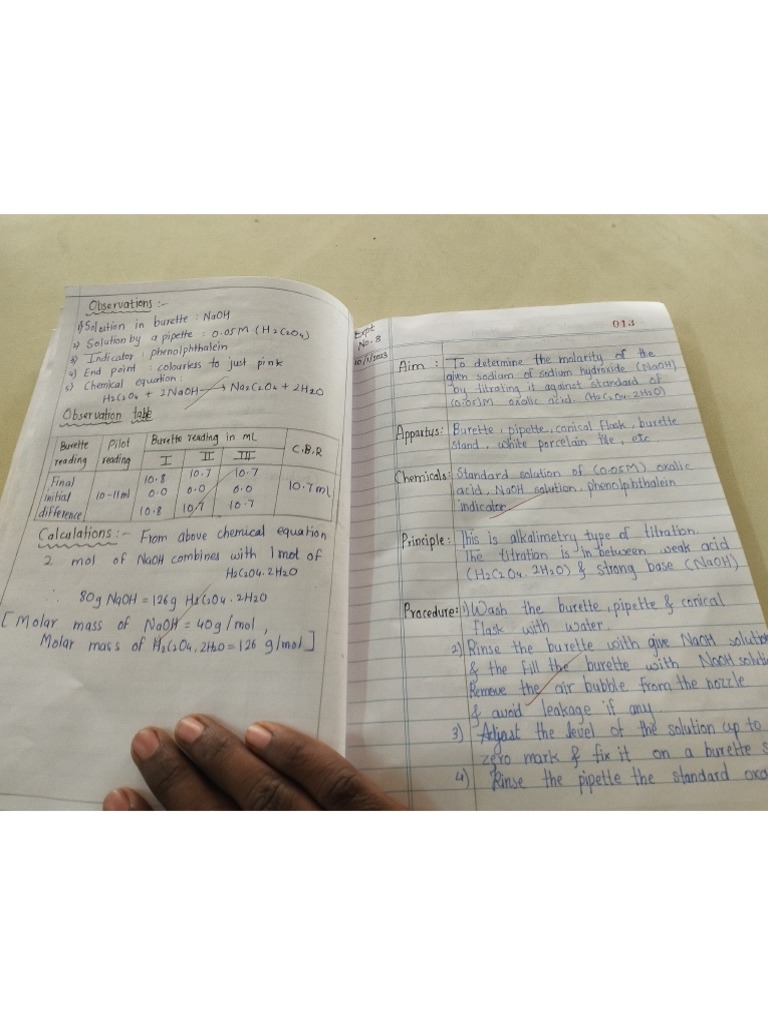 Observations :-
1) Solution in burette : NaOH
2) Solution by a pipette : 0.05M (H2C2O4)
3) Indicator : phenolphthalein
4) End point : colourless to just pink
5) Chemical equation :
H2C2O4 + 2NaOH → Na2C2O4 + 2H2O
Observation table
Burette reading | Pilot reading | Burette reading in mL | C.B.R
I | II | III
Final | 10.8 | 10.7 | 10.7
initial | 10-11ml | 0.0 | 0.0 | 0.0 | 10.7ml
difference | 10.8 | 10.7 | 10.7
Calculations :- From above chemical equation
2 mol of NaOH combines with 1 mol of
H2C2O4.2H2O
∴ 80g NaOH = 126g H2C2O4.2H2O
[Molar mass of NaOH = 40g/mol,
Molar mass of H2C2O4.2H2O = 126 g/mol]
Expt
No. 8
013
Aim : To determine the molarity of the
given sodium of sodium hydroxide (NaOH)
by titrating it against standard of
(0.05)M oxalic acid. (H2C2O4.2H2O)
Appartus: Burette, pipette, conical flask, burette
stand, white porcelain tile, etc.
Chemicals: Standard solution of (0.05M) oxalic
acid, NaOH solution, phenolphthalein
indicator.
Principle: This is alkalimetry type of titration.
The titration is in between weak acid
(H2C2O4.2H2O) & strong base (NaOH)
Procedure: 1) Wash the burette, pipette & conical
flask with water.
2) Rinse the burette with give NaOH solution
& the fill the burette with NaOH soluti
Remove the air bubble from the nozzle
& avoid leakage if any.
3) Adjast the level of the solution up to
zero mark & fix it on a burette s
4) Rinse the pipette the standard oxa